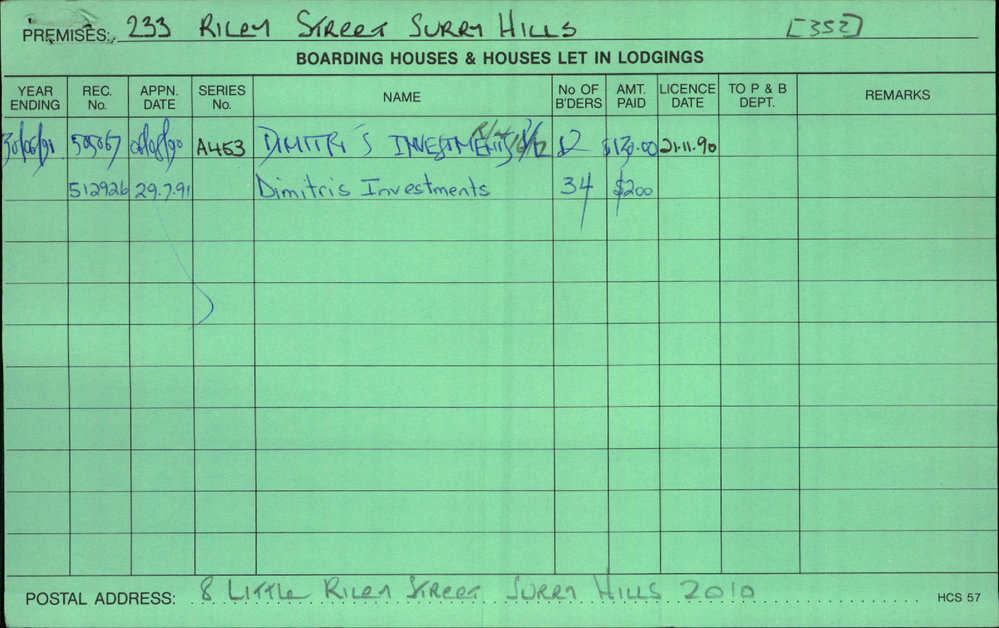 PREMISES: 233 RILEY STREET SURRY HILLS [352]
BOARDING HOUSES & HOUSES LET IN LODGINGS
YEAR ENDING REC. No. APPN. DATE SERIES No. NAME No OF B'DERS AMT. PAID LICENCE DATE TO P & B DEPT. REMARKS
30/06/91 505067 08/08/90 A453 DIMITRI'S INVESTMENTS 12 $130.00 21.11.90
512926 29.7.91 Dimitris Investments 34 $200
POSTAL ADDRESS: 8 LITTLE RILEY STREET SURRY HILLS 2010
HCS 57